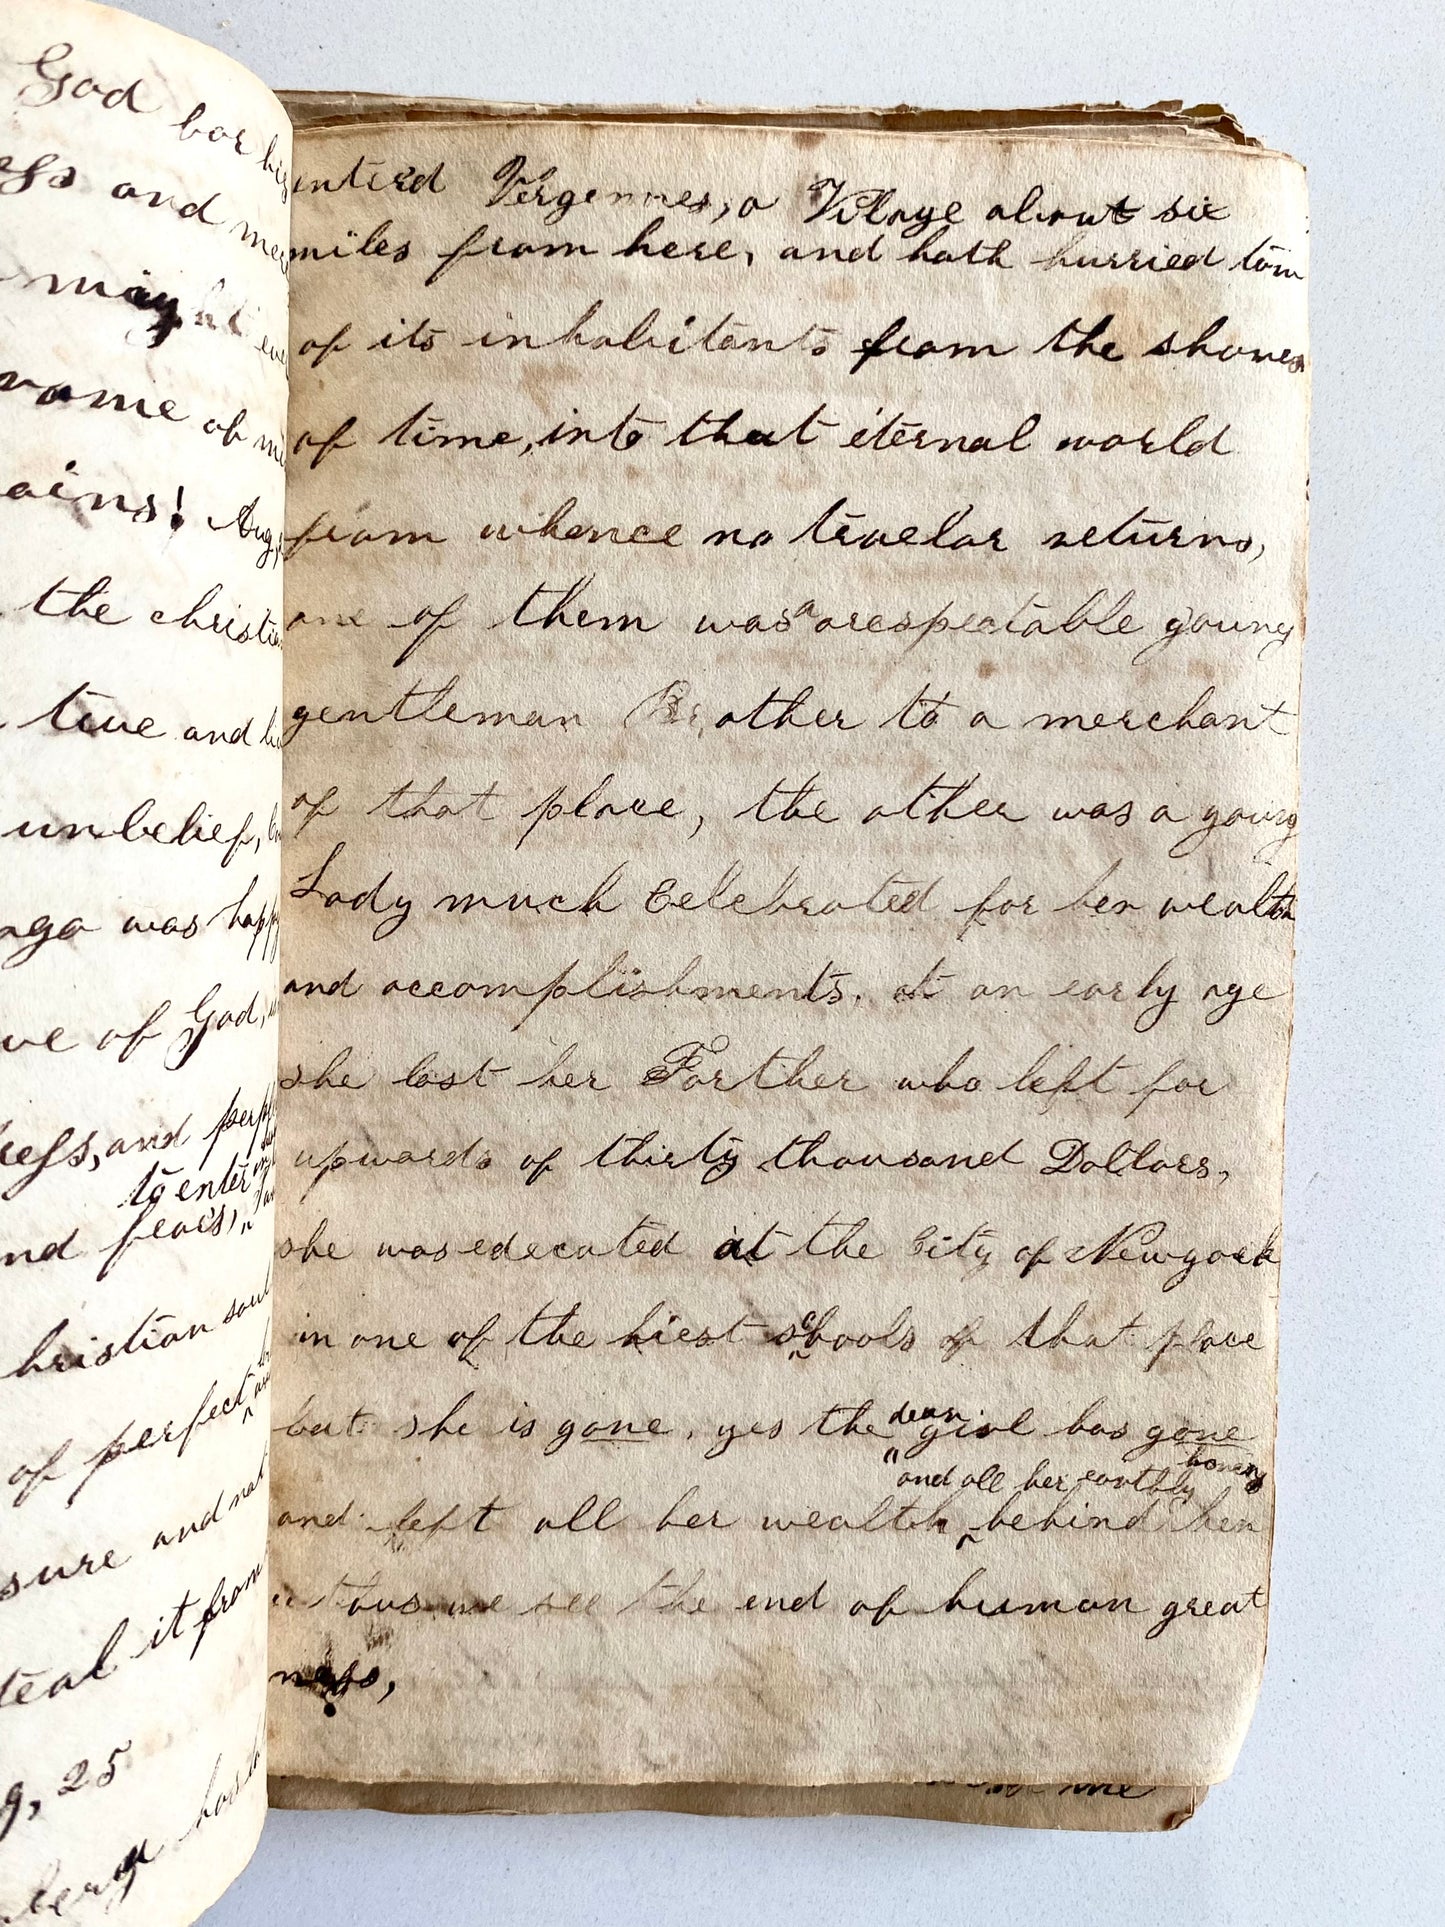 God for his
and mer
might
ame of my
ains! Aug,
the christian
true and
unbelief,
ago was happy
ve of God,
ess, and perp
to enter
and fears,
hristian soul
of perfect
sure and not
teal it from
g, 25
enterd Vergennes, a Vilage about six
miles from here, and hath hurried tow
of its inhabitants from the shores
of time, into that eternal world
from whence no travelor returns,
one of them was a arespectable young
gentleman Brother to a merchant
of that place, the other was a young
Lady much Celebrated for her wealth
and accomplishments. at an early age
she lost her Farther who left for
upwards of thirty thousand Dollars,
she was edecated at the City of Newyork
in one of the hiest schools of that place
but she is gone, yes the dear girl has gone
and all her earthly honers
and left all her wealth behind her
thus we see the end of human great
ness,
me